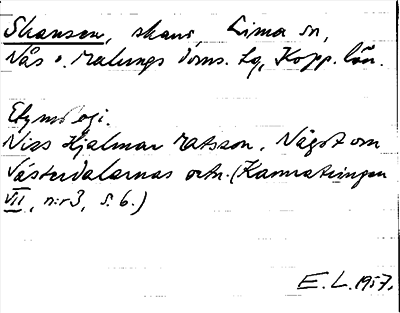 Skansen, skans, Lima sn,
Nås o. Malungs doms. hg, Kopp. län.
Etymologi.
Niss Hjalmar Matsson, Något om
Västerdalarnas ortn. (Kamratringen
VII, n:r 3, s. 6.)
E. L. 1957.